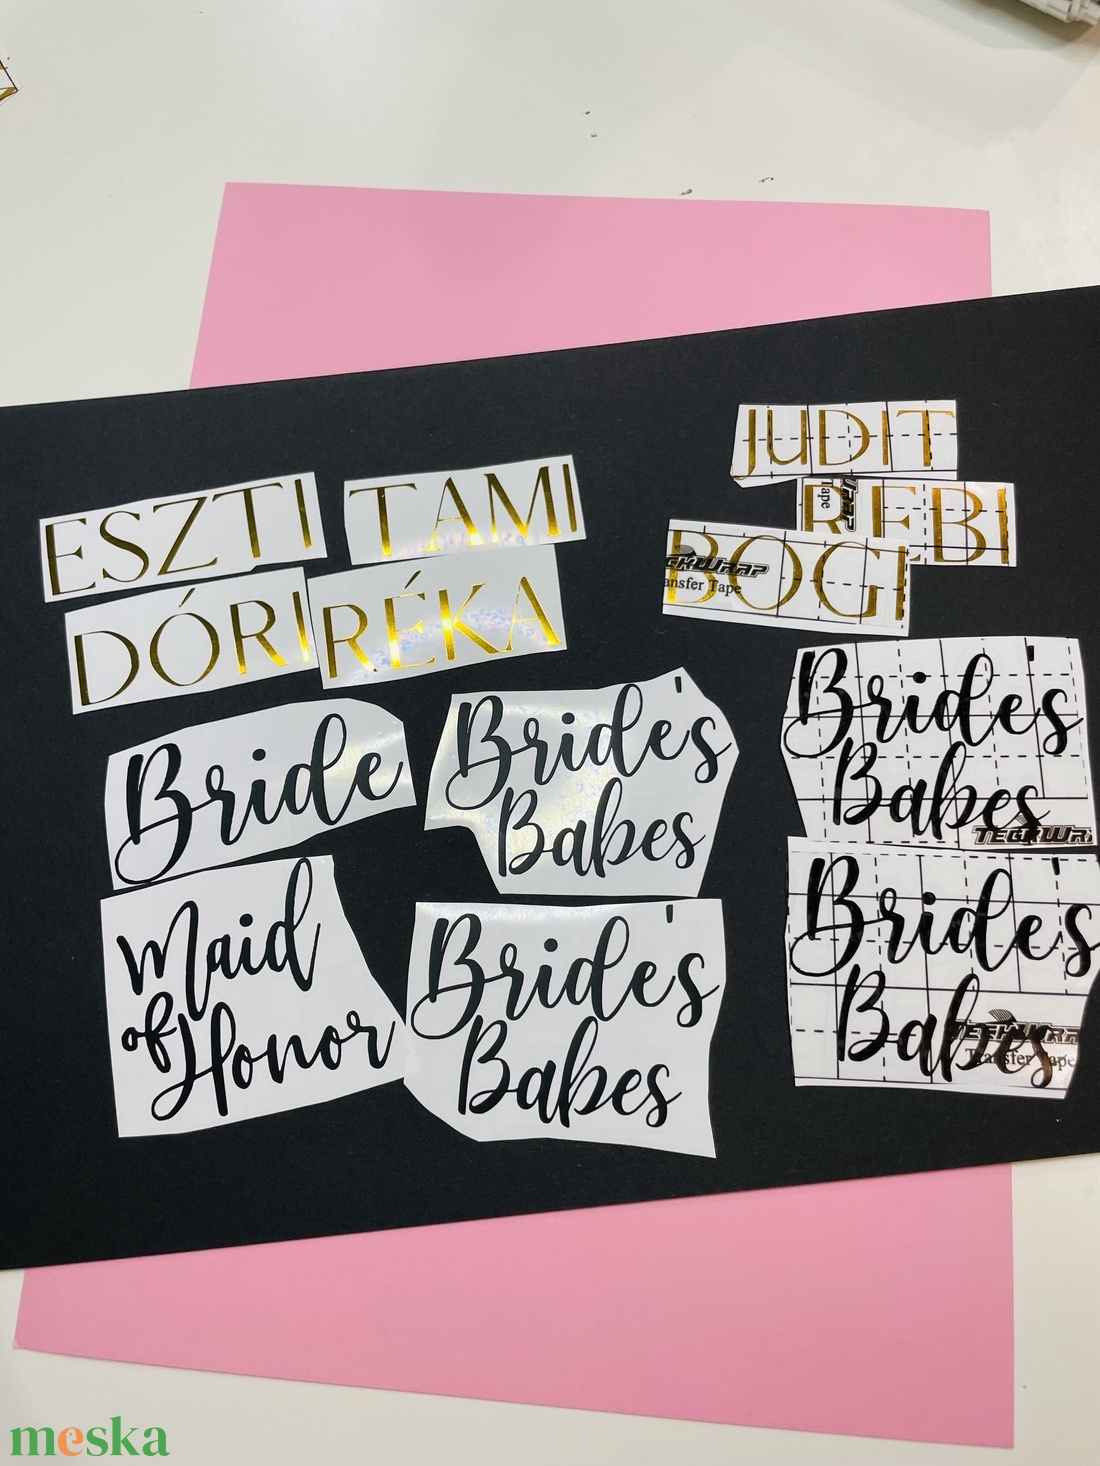 ESZTI
TAMI
JUDIT
DÓRI
RÉKA
REBI
Tape
BOGI
Transfer Tape
Bride
Bride's
Babes
Bride's
Babes
Maid
of
Honor
Bride's
Babes
Bride's
Babes
TECKWRAP
Transfer Tape
meska